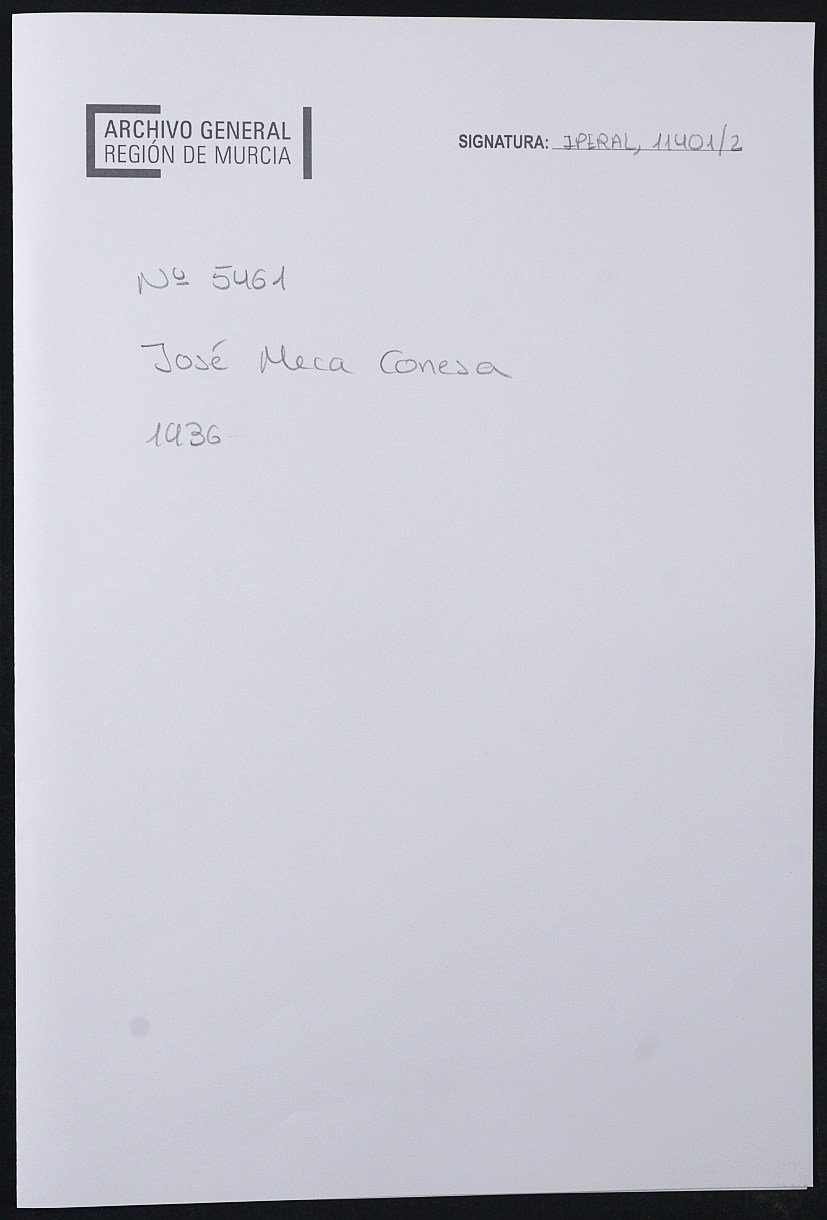 ARCHIVO GENERAL
REGIÓN DE MURCIA
SIGNATURA: JPERAL, 11401/2
Nº 5461
José Meca Conesa
1936